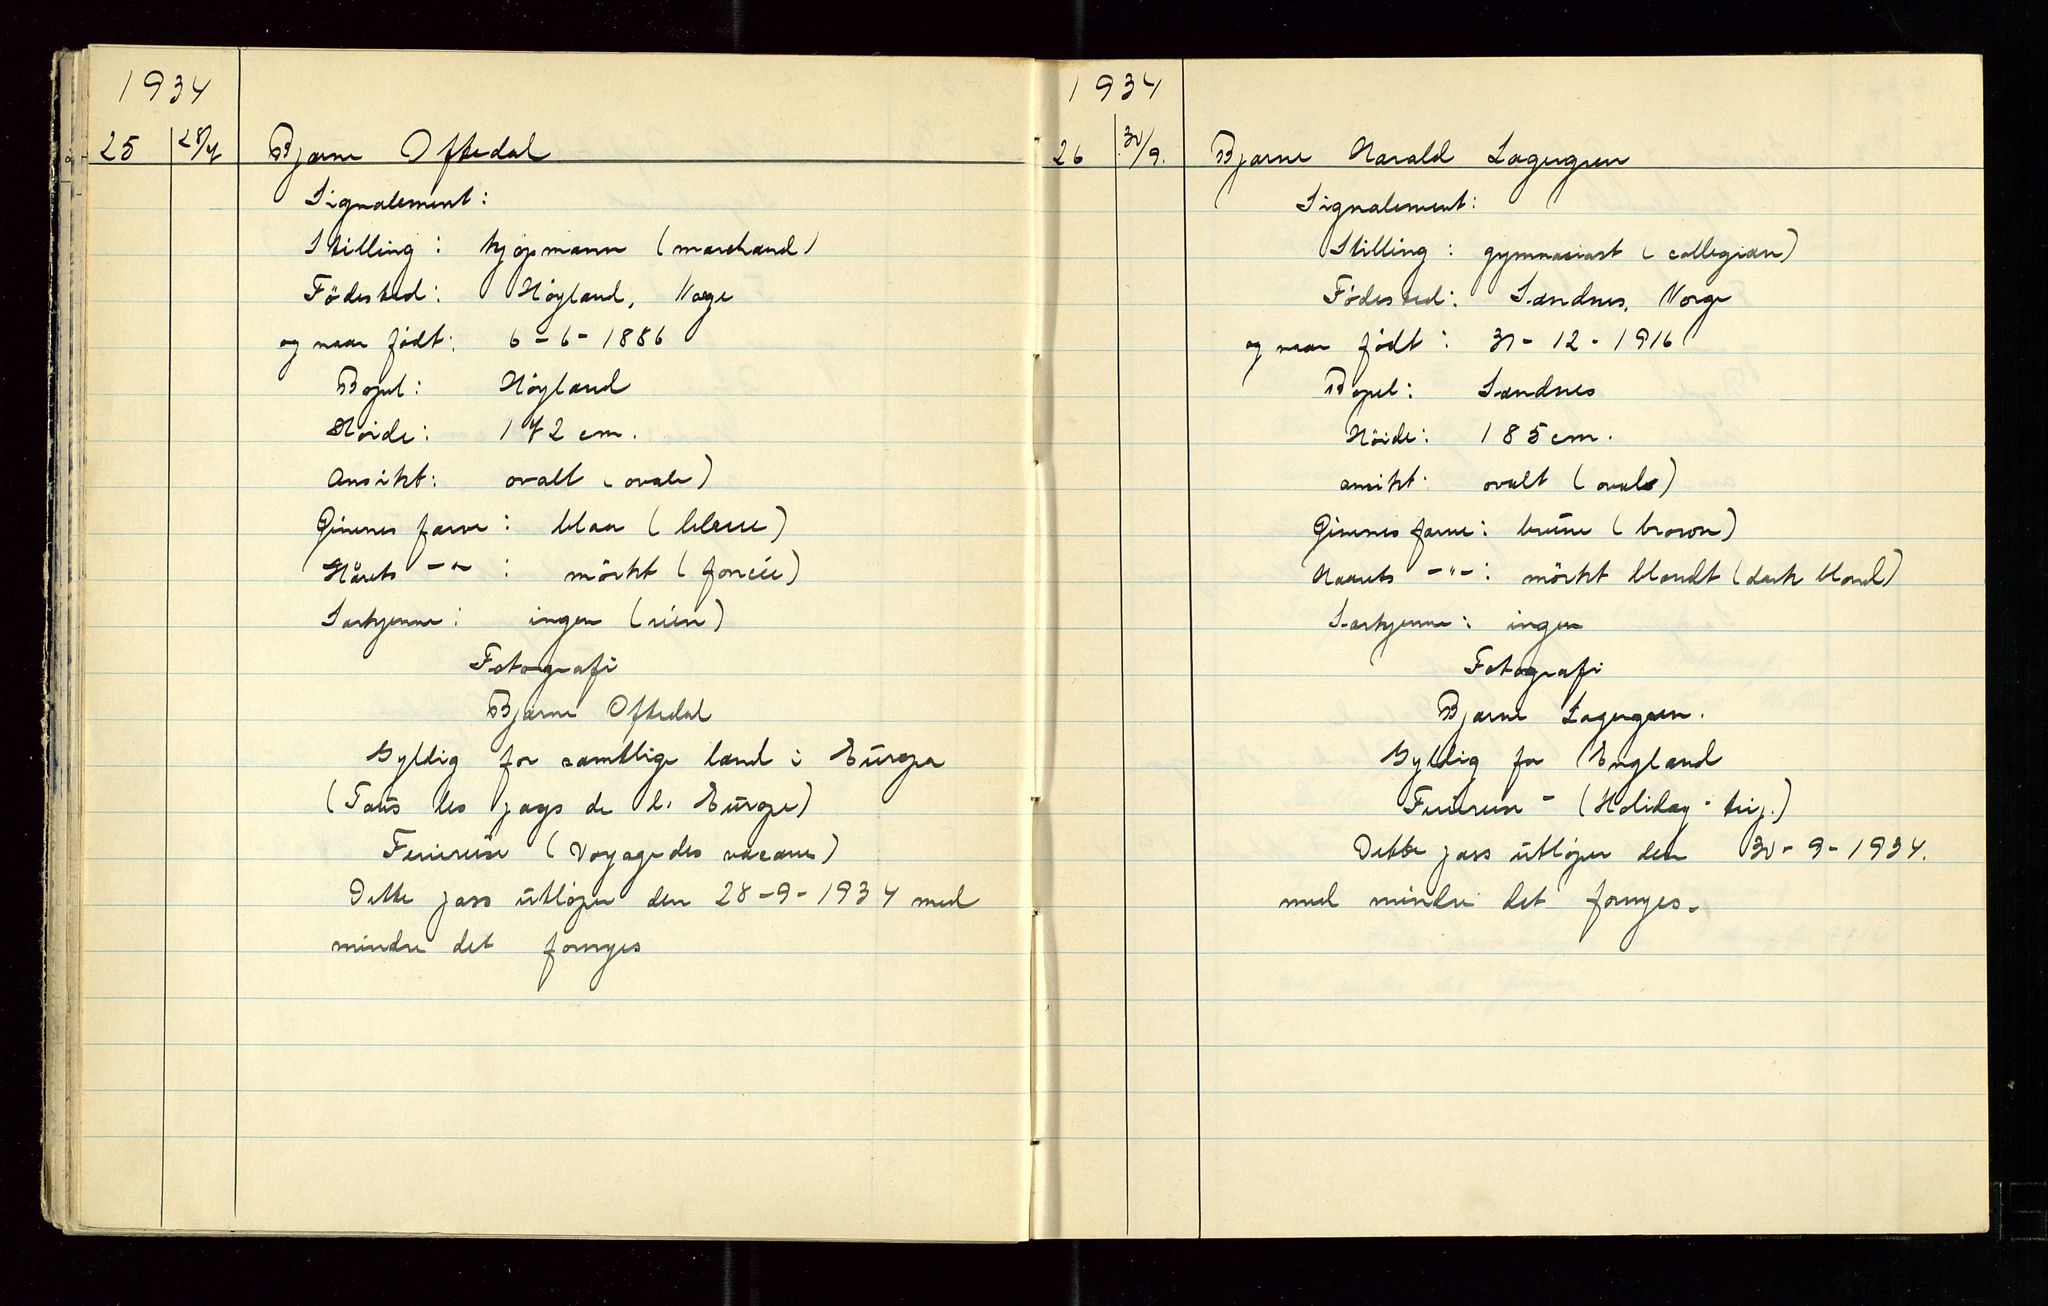 1934
25 28/7 Bjarne Oftedal
Signalement:
Stilling: kjøpmann (marchand)
Födested: Høyland, Norge
og naar født: 6-6-1886
Bopel: Høyland
Høide: 172 cm.
Ansikt: ovalt (ovale)
Öinenes farve: blaa (bleue)
Hårets -"- : mörkt (foncée)
Særkjenne: ingen (rien)
Fotografi
Bjarne Oftedal
Gyldig for samtlige land i Europa
(Tous les pays de l'Europe)
Feriereise (Voyage des vacans)
Dette pass utløper den 28-9-1934 med
mindre det fornyes
1934
26 Bjarne Harald Lagergren
Signalement:
Stilling: gymnasiast (collegian)
Födested: Sandnes, Norge
og naar født: 31-12-1916
Bopel: Sandnes
Höide: 185 cm.
ansikt: ovalt (ovale)
Öinenes farve: brune (brown)
Haarets -"-: mörkt blondt (dark blond)
Særkjenne: ingen
Fotografi
Bjarne Lagergren.
Gyldig for England
Feriereise - (Holiday-trip.)
Dette pass utløper den 30-9-1934.
med mindre det fornyes.